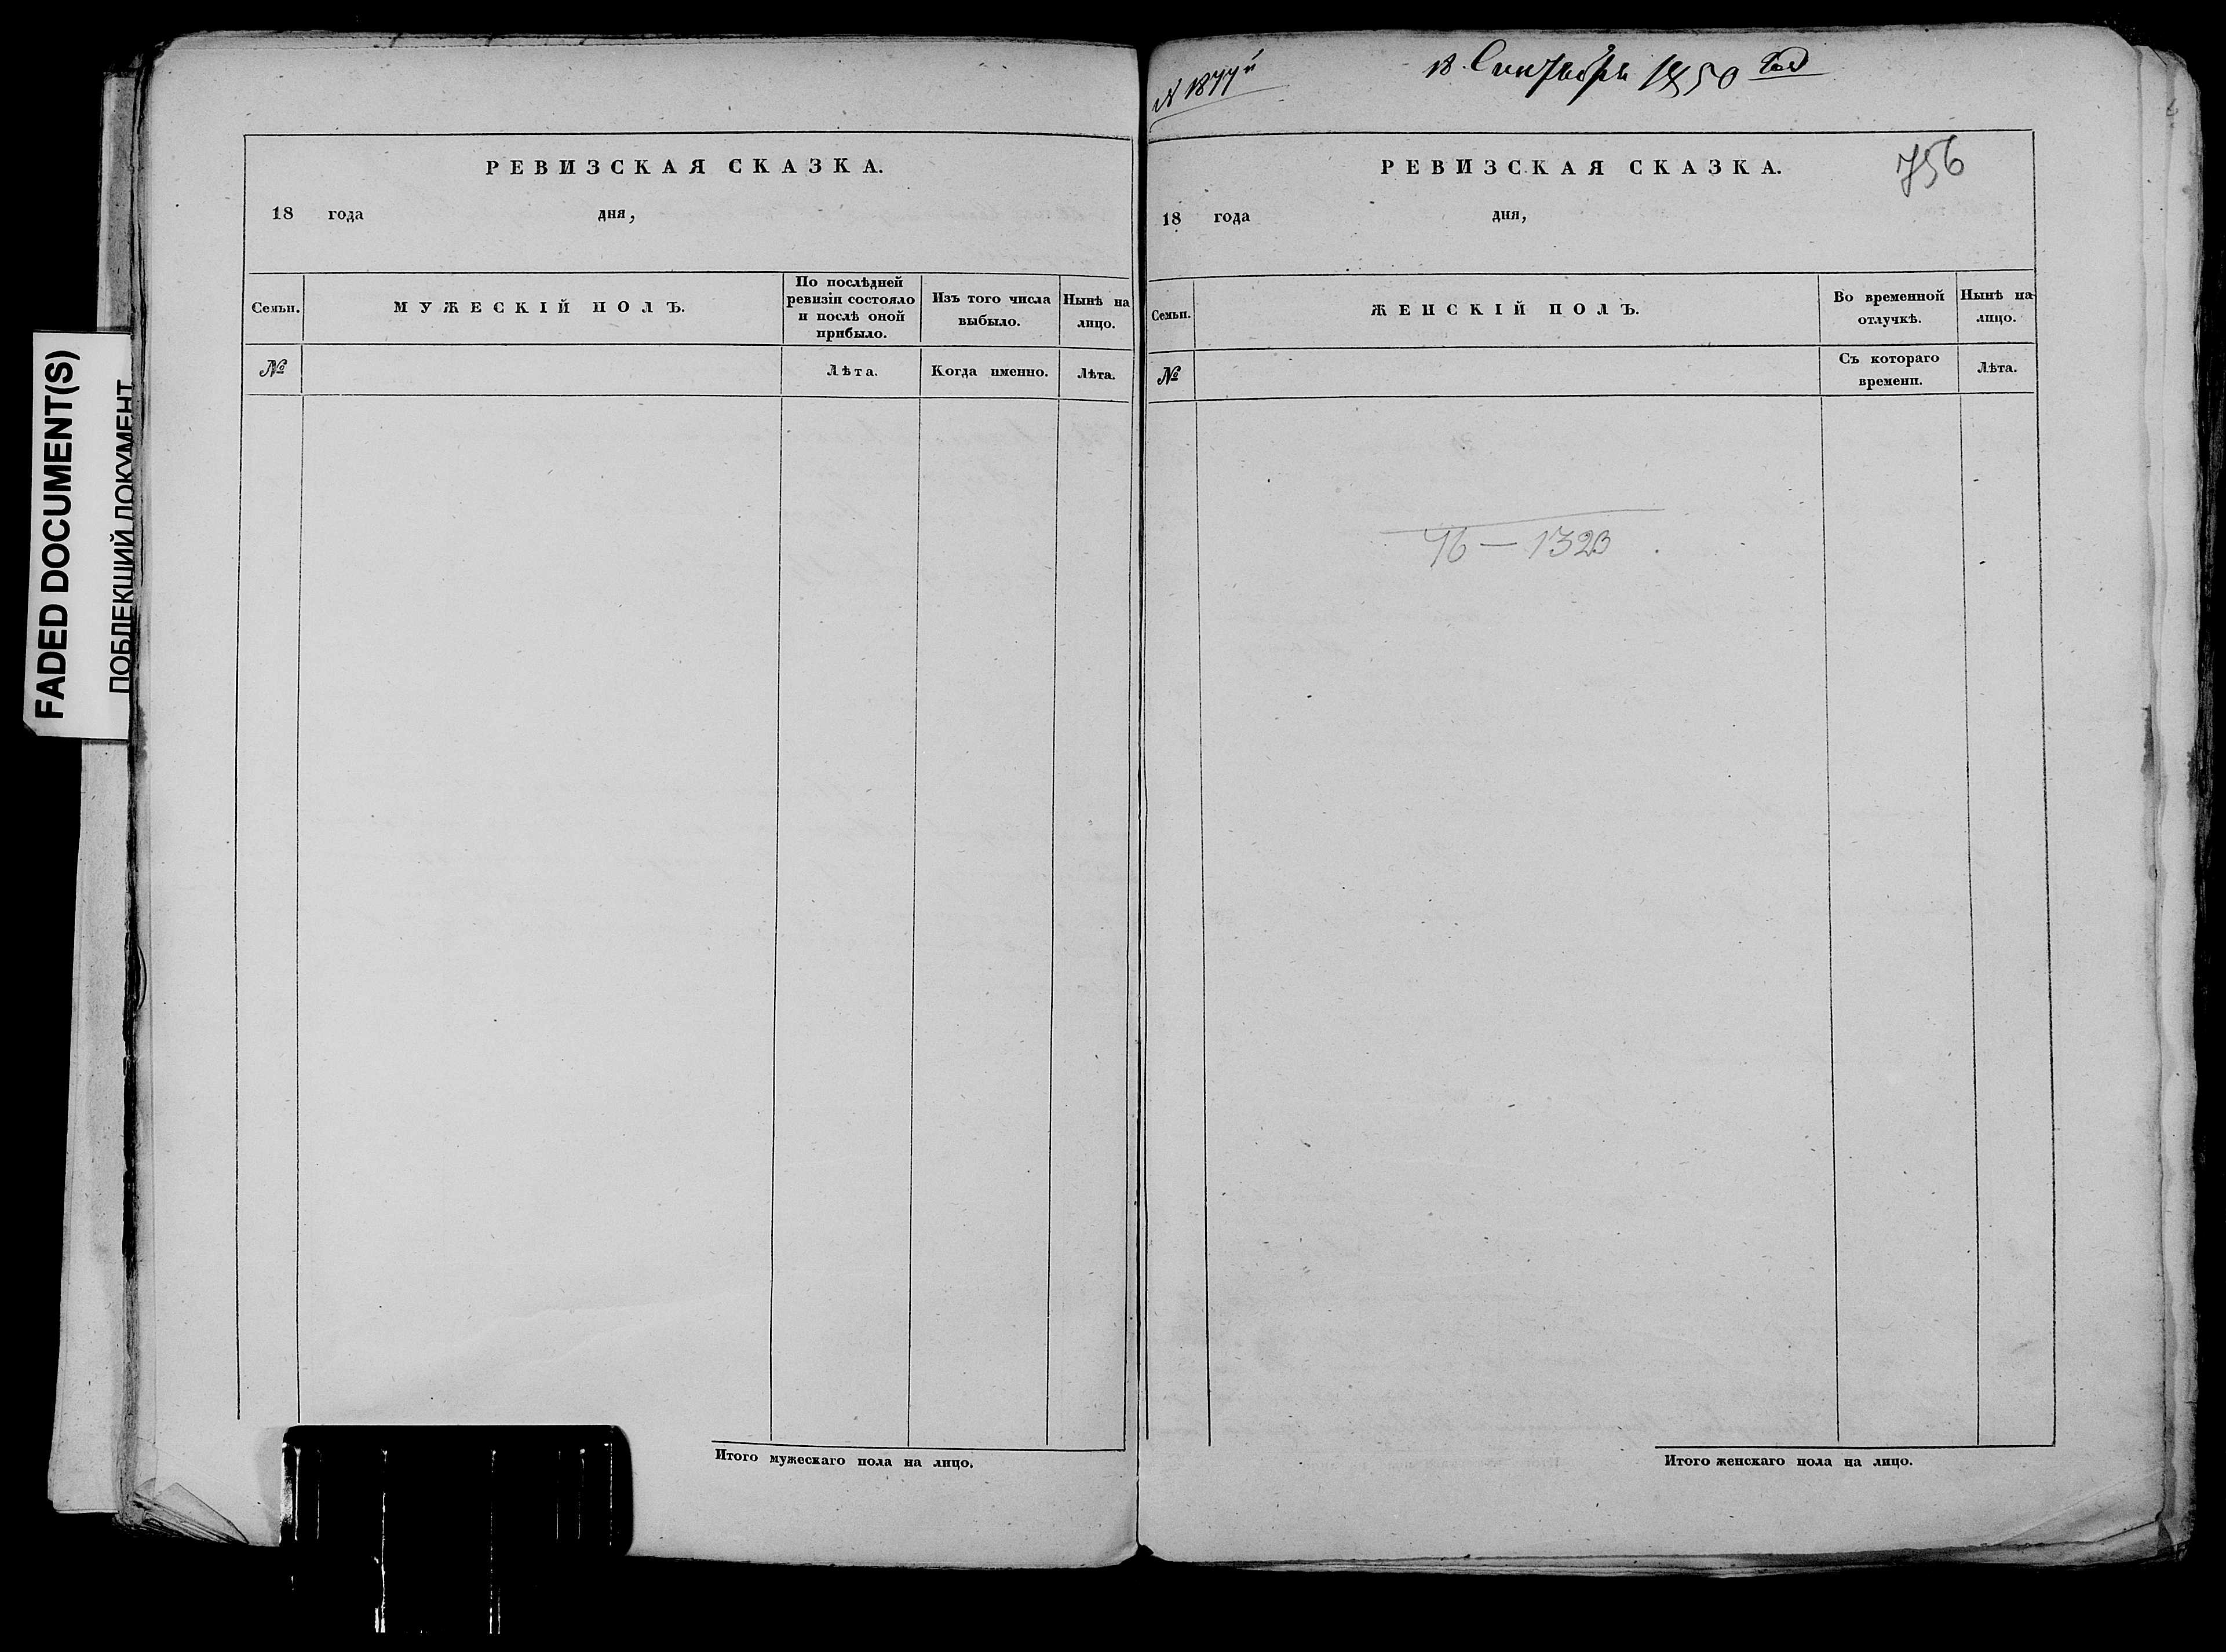 FADED DOCUMENT(S)
ПОБЛЕКШИЙ ДОКУМЕНТ
РЕВИЗСКАЯ СКАЗКА.
18 года дня,
Семьи. МУЖЕСКІЙ ПОЛЪ. По послѣдней ревизіи состояло и послѣ оной прибыло. Изъ того числа выбыло. Нынѣ на лицо.
№ Лѣта. Когда именно. Лѣта.
Итого мужескаго пола на лицо.
№ 1877й
18 Сентября 1850 года
РЕВИЗСКАЯ СКАЗКА.
756
18 года дня,
Семьи. ЖЕНСКІЙ ПОЛЪ. Во временной отлучкѣ. Нынѣ на лицо.
№ Съ котораго времени. Лѣта.
76 — 1323
Итого женскаго пола на лицо.